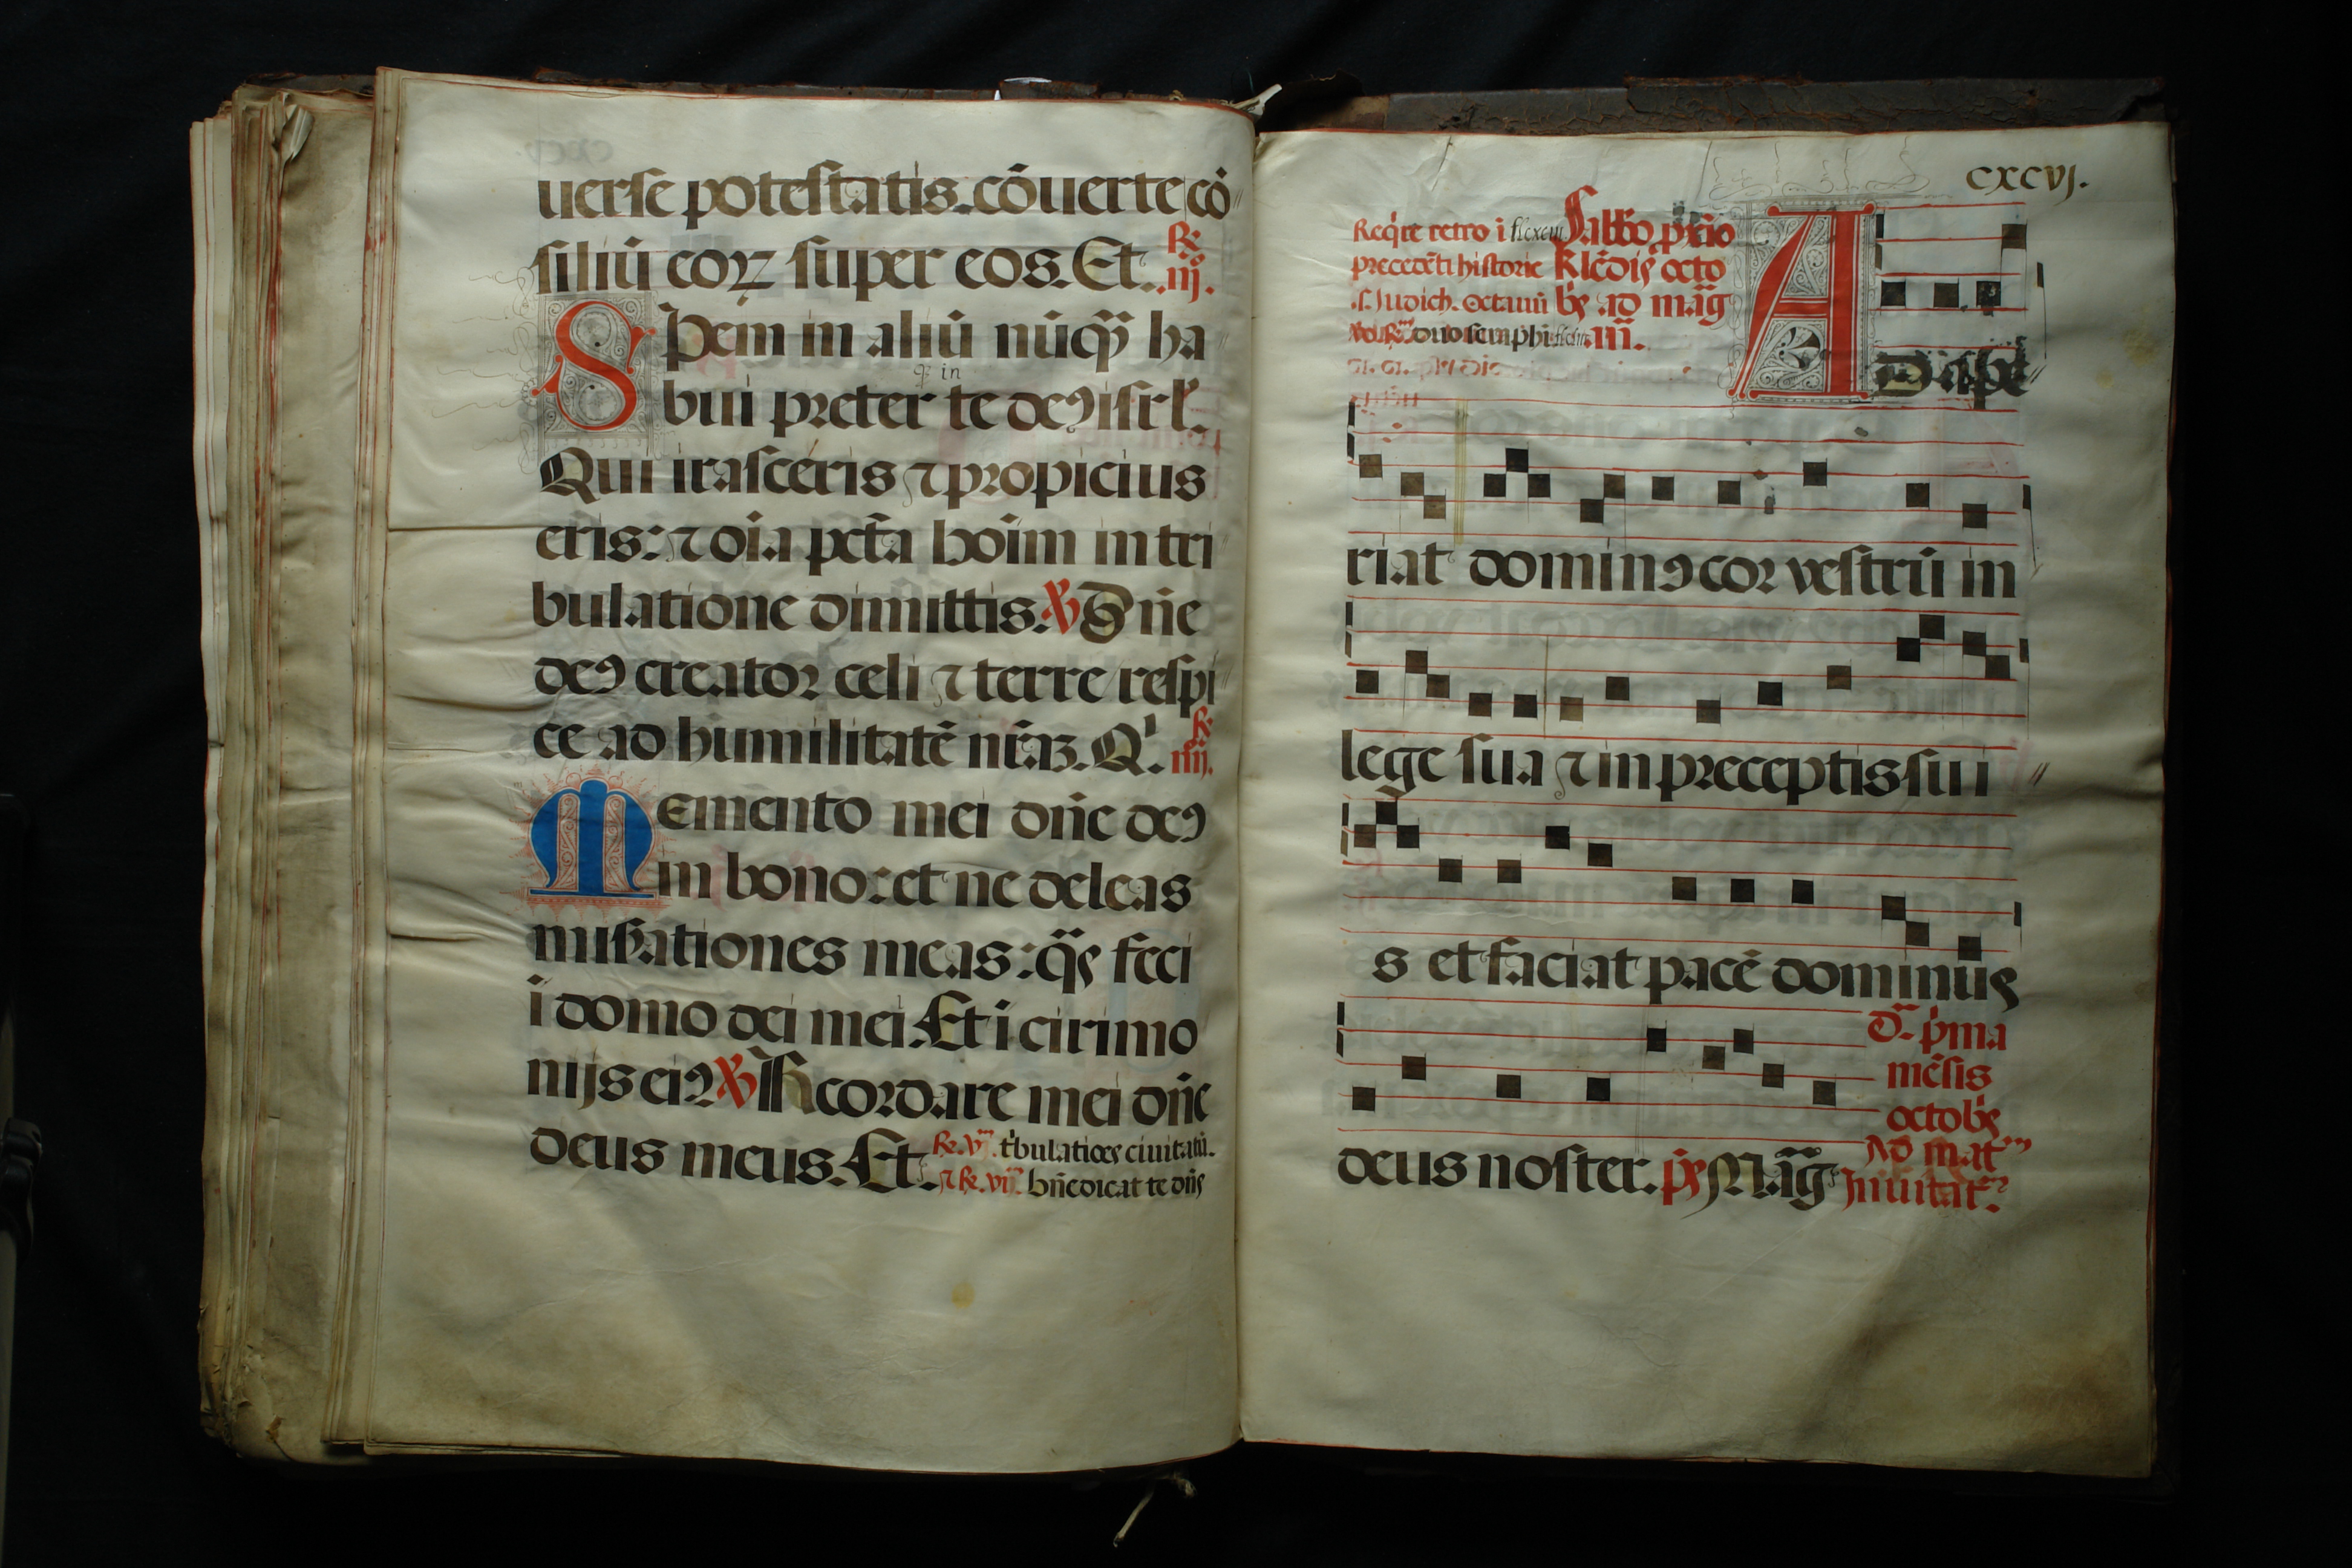 uerse potestatis. cōuerte cō
siliū eoꝝ super eos. Et. R. iij.
Spem in aliū nūqᷓ ha
qͥ in
bui preter te deꝰ isrl̕.
Qui irasceris ⁊ propicius
eris: ⁊ oīa pctā hoīm in tri
bulatione dimittis. ℣ Dn̄e
deꝰ creator celi ⁊ terre respi
ce ad humilitatē nr̄aꝫ. Qͥ. R. iiij.
Memento mei dn̄e deꝰ
in bono: et ne deleas
misẜationes meas: qᷓs feci
ī domo dei mei. Et ī cirimo
nijs eiꝰ ℣ Recordare mei dn̄e
deus meus. Et. R. vj. tͥbulatiōes ciuitatū.
⁊ R. vij. bn̄edicat te dn̄s
CXCVJ.
Reqͥre retro ī
Sabbo pͥcio
precedēti historie
kl̄edis octo
.s. Judich. octauū
bͥs ad mag̃
duo semphī
añ.
Adape
riat dominꝰ cor vestrū in
lege sua ⁊ in preceptis sui
s et faciat pacē dominus
deus noster. pͥs Mag̃
Dᷓ pͥma
mēsis
octobͥs
Ad mat̃
Inuitat̃.